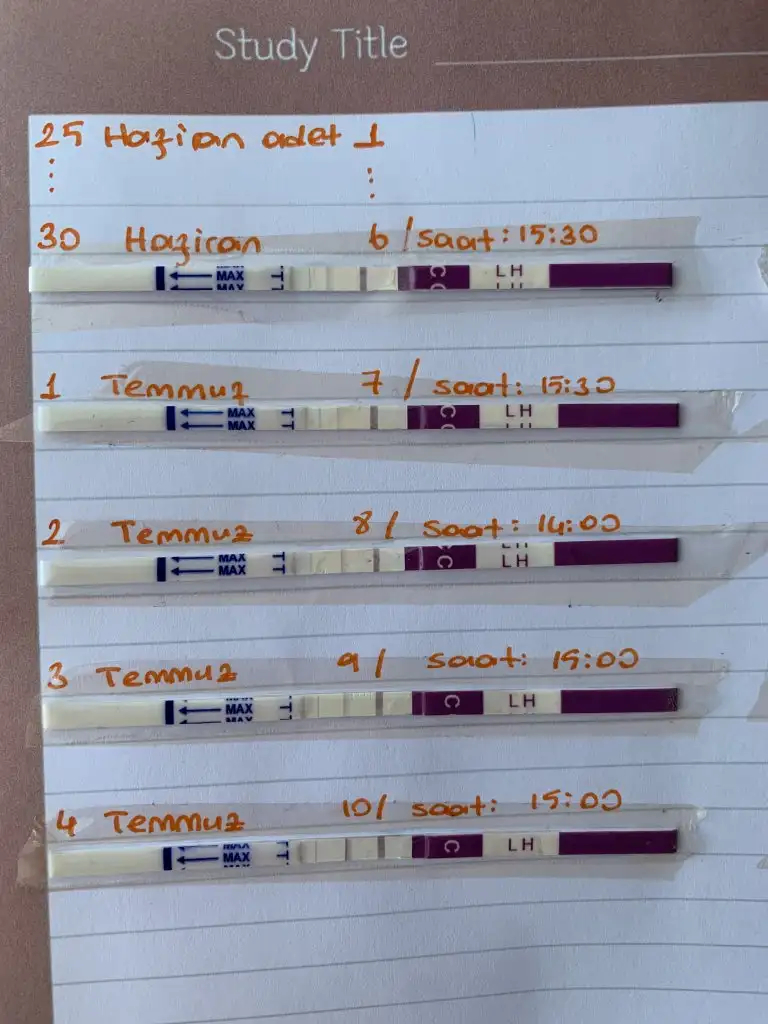 Study Title
25 Haziran adet 1
30 Haziran 6 / saat: 15:30
MAX MAX TT C LH
1 Temmuz 7 / saat: 15:30
MAX MAX TT C LH
2 Temmuz 8 / saat: 14:00
MAX MAX TT C LH
3 Temmuz 9 / saat: 15:00
MAX MAX T C LH
4 Temmuz 10/ saat: 15:00
MAX MAX T C LH